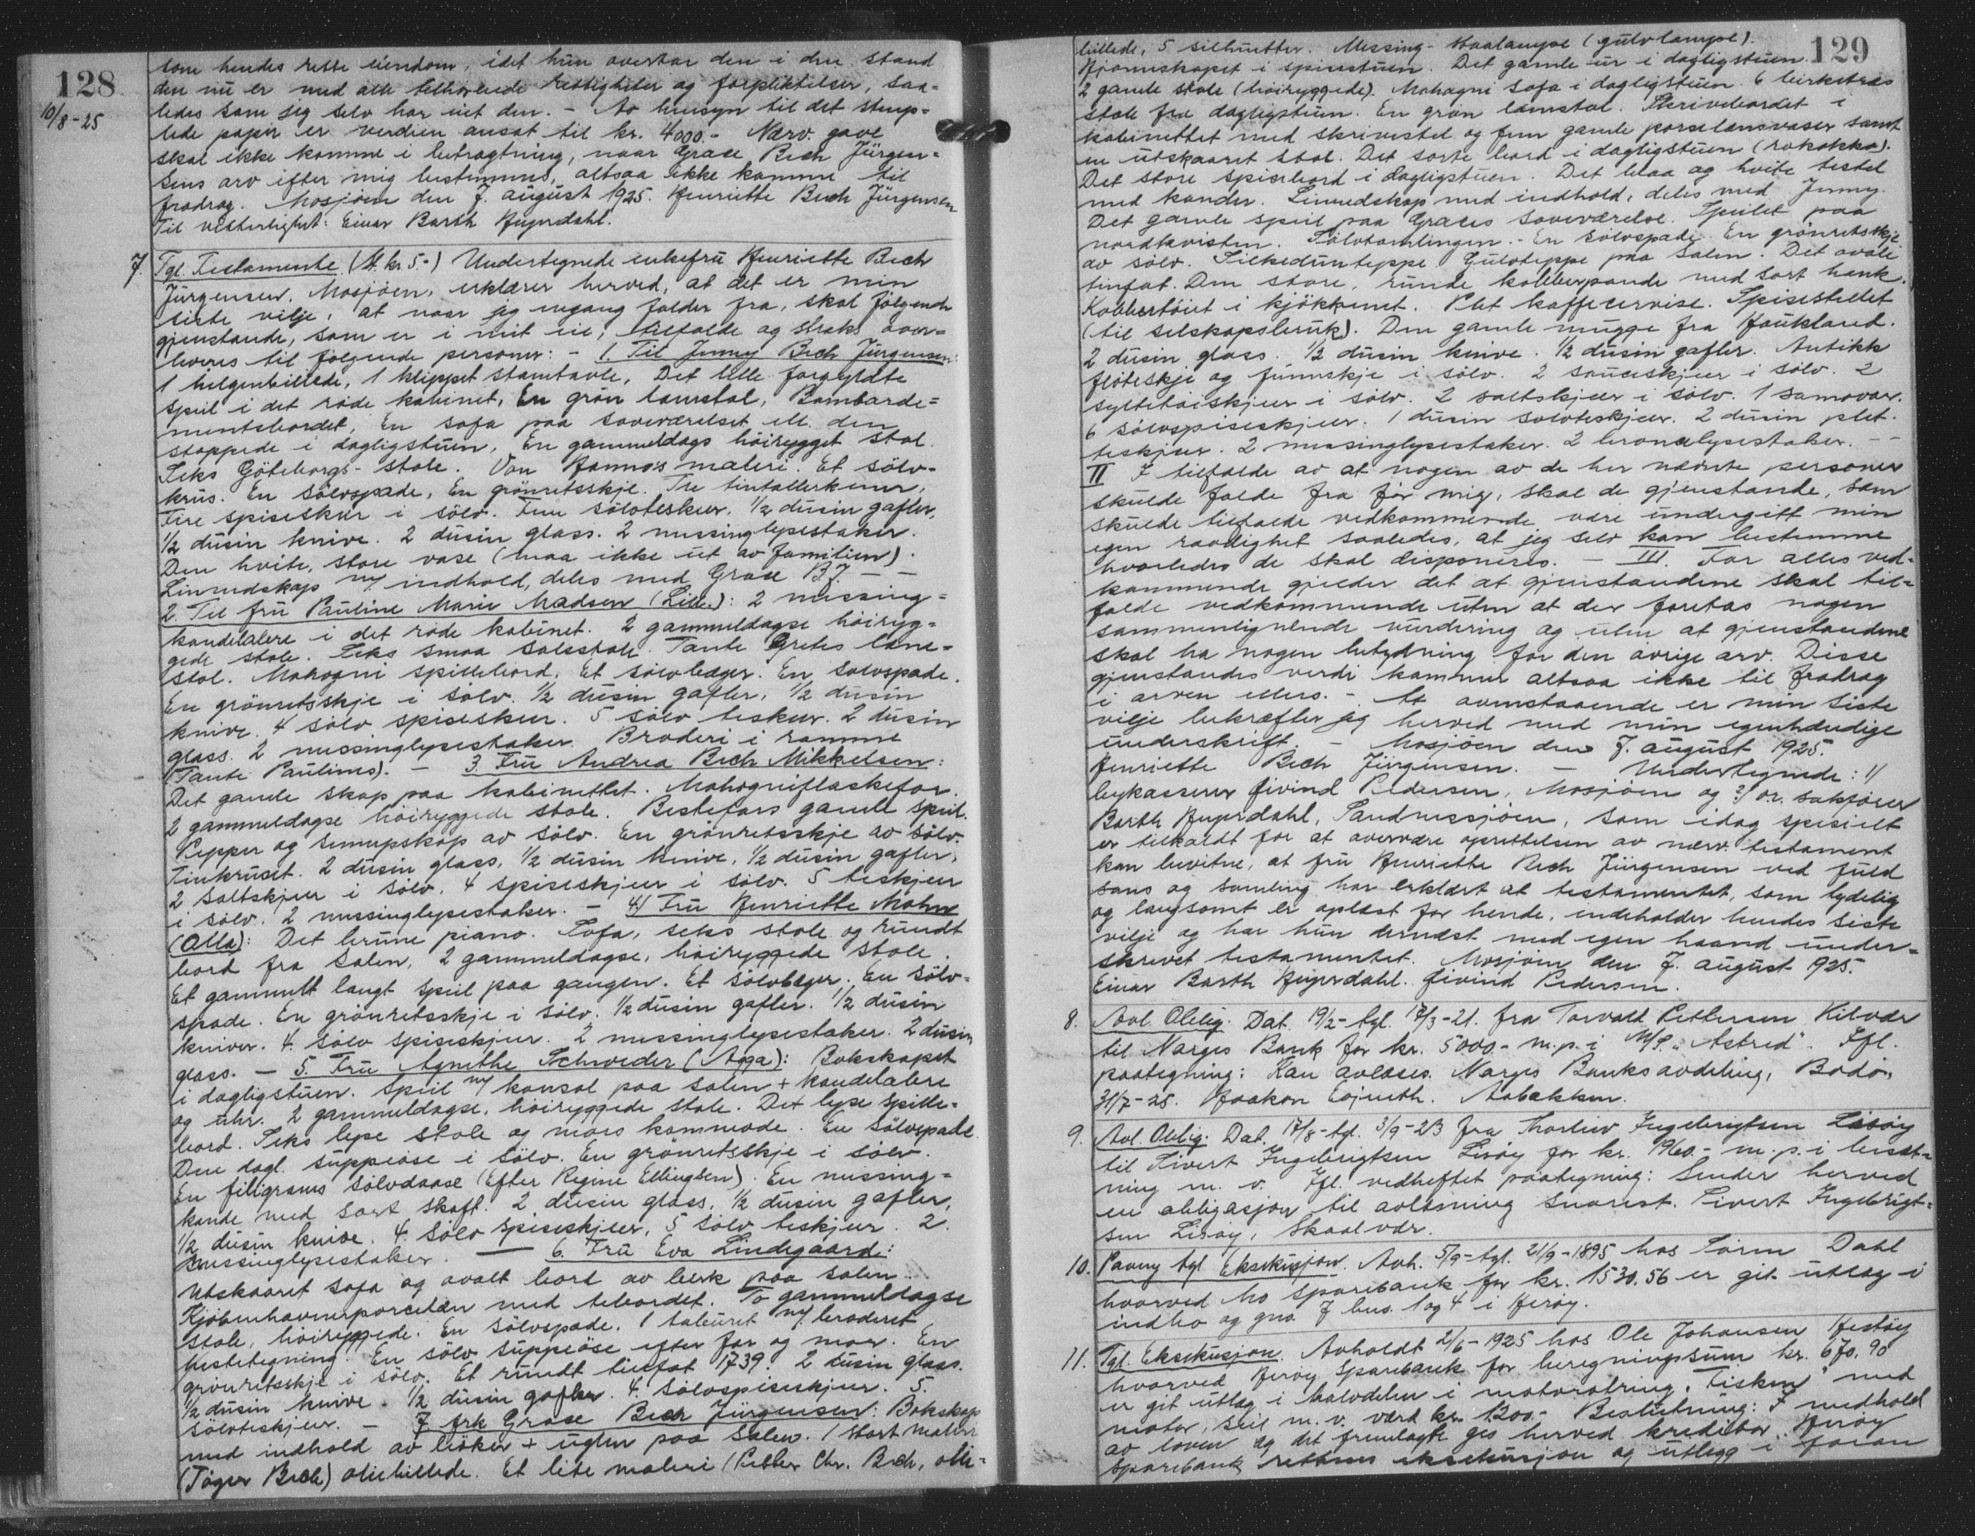 128
10/8-25
som hendes rette eiendom, idet hun overtar den i den stand
den nu er med alle tilhørende rettigheter og forpliktelser, saa-
ledes som jeg selv har eiet den. - Av hensyn til det stemp-
lede papir er verdien ansat til kr. 4000.- Nærv. gave
skal ikke komme i betragtning, naar Grace Bech Jürgen-
sens arv efter mig bestemmes, altsaa ikke komme til
fradrag. Mosjøen den 7. august 1925. Henriette Bech Jürgensen
Til vitterlighet: Einar Barth Heyerdahl.
7. Tgl. Testamente (St. kr. 5.-) Undertegnede enkefru Henriette Bech
Jürgensen, Mosjøen, erklærer herved, at det er min
siste vilje, at naar jeg engang falder fra, skal følgende
gjenstande, som er i mit eie, tilfalde og straks over-
leveres til følgende personer: - 1. Til Jenny Bech Jürgensen:
1 helgenbillede, 1 klippet stamtavle, Det lille forgyldte
speil i det røde kabinet, En grøn lænstol, Bombarde-
mentsbordet, En sofa paa soveværelset ell. den
stoppede i dagligstuen, En gammeldags høirygget stol.
Seks Göteborgs-stole. Von Hannos maleri. Et sølv-
krus. En sølvspade, En grønretsskje. Tre tintallerkener,
Fire spiseskeer i sølv. Fem sølvteskeer. 1/2 dusin gafler,
1/2 dusin knive. 2 dusin glass. 2 messinglysestaker.
Den hvite, store vase (maa ikke ut av familien).
Linnedskap m/ indhold, deles med Grace B.J. - -
2. Til fru Pauline Marie Madsen (Lille): 2 messing-
kandelabere i det røde kabinet. 2 gammeldagse høiryg-
gede stole. Seks smaa salsstole. Tante Gretes læne-
stol. Mahogni spillebord. Et sølvbæger. En sølvspade.
En grønretsskje i sølv. 1/2 dusin gafler, 1/2 dusin
knive. 4 sølv spiseskeer. 5 sølv teskeer. 2 dusin
glass. 2 messinglysestaker. Broderi i ramme
(Tante Paulines). - 3. Fru Andrea Bech Mikkelsen:
Det gamle skap paa kabinettet. Mahogniflaskefor.
2 gammeldagse høiryggede stole. Bestefars gamle speil.
Pepper og sennepskop av sølv. En grønretsskje av sølv.
Tinkruset. 2 dusin glass, 1/2 dusin knive, 1/2 dusin gafler,
2 saltskjeer i sølv. 4 spiseskjeer i sølv. 5 teskjeer
i sølv. 2 messinglysestaker. - 4/ Fru Henriette Mohn
(Alla): Det brune piano. Sofa, seks stole og rundt
bord fra salen, 2 gammeldagse, høiryggede stole.
Et gammelt langt speil paa gangen. Et sølvbæger. En sølv-
spade. En grønretsskje i sølv. 1/2 dusin gafler. 1/2 dusin
kniver. 4 sølv spiseskjeer. 2 messinglysestaker. 2 dusin
glass. - 5. Fru Agnethe Schweder (Agga): Bokskapet
i dagligstuen. Speil m/ konsol paa salen + kandelabere
og uhr. 2 gammeldagse, høiryggede stole. Det lyse spille-
bord. Seks lyse stole og mors kommode. En sølvspade.
Den dagl. suppeøse i sølv. En grønretsskje i sølv.
En filigrams sølvdaase (Efter Regine Ellingsen). En messing-
kande med sort skaft. 2 dusin glass, 1/2 dusin gafler,
1/2 dusin knive. 4 sølv spiseskjeer, 5 sølv teskjeer. 2
messinglysestaker. - 6. Fru Eva Lindegaard:
Utskaaret sofa og ovalt bord av bøk paa salen.
Kjøbenhavnerporcelæn med tebordet. To gammeldagse
stole, høiryggede. En sølvspade. 1 taburet m/ broderet
hestetegning. En sølv suppeøse efter far og mor. En
grønretsskje i sølv. Et rundt tinfat 1739. 2 dusin glass.
1/2 dusin knive. 1/2 dusin gafler. 4 sølvspiseskjeer. 5
sølvteskjeer. - 7. frk Grace Bech Jürgensen: Bokskap
med indhold av bøker + uglen paa salen. 1 stort maleri
(Tøger Bech) oliebillede. Et lite maleri (Petter Chr. Bech, olie-
129
billede, 5 silhuetter. Messing-staalampe (gulvlampe).
Hjørneskapet i spisestuen. Det gamle ur i dagligstuen.
2 gamle stole (høiryggede). Mahogni sofa i dagligstuen 6 birketræs
stole fra dagligstuen. En grøn lænstol. Skrivebordet i
kabinettet med skrivestel og fem gamle porselænsvaser samt
en utskaaret stol. Det sorte bord i dagligstuen (rokokko).
Det store spisebord i dagligstuen. Det blaa og hvite testel
med kander. Linnedskap med indhold, deles med Jenny.
Det gamle speil paa Graces soveværelse. Speilet paa
nordkvisten. Sølvsamlingen. - En sølvspade. En grønretsskje
av sølv. Silkedunteppe. Gulvteppe paa salen. Det ovale
tinfat. Den store, runde kobberpande med sort hank.
Kobbertøiet i kjøkkenet. Plet kaffeservise. Spisestellet
(til selskapsbruk). Den gamle mugge fra Haukland.
2 dusin glass. 1/2 dusin knive. 1/2 dusin gafler. Antikk
fløteskje og finnskje i sølv. 2 sauceskjeer i sølv. 2
syltetøiskjeer i sølv. 2 saltskjeer i sølv. 1 samovar.
6 sølvspiseskjeer. 1 dusin sølvteskjeer. 2 dusin plet
teskjeer. 2 messinglysestaker. 2 bronselysestaker. - -
II I tilfælde av at nogen av de her nævnte personer
skulde falde fra før mig, skal de gjenstande, som
skulde tilfalde vedkommende, være undergitt min
egen raadighet saaledes, at jeg selv kan bestemme
hvorledes de skal disponeres. - III. For alles ved-
kommende gjelder det at gjenstandene skal til-
falde vedkommende uten at der foretas nogen
sammenlignende vurdering og uten at gjenstandene
skal ha nogen betydning for den øvrige arv. Disse
gjenstandes verdi kommer altsaa ikke til fradrag
i arven ellers. - At ovenstaaende er min siste
vilje bekræfter jeg herved med min egenhændige
underskrift. - Mosjøen den 7. august 1925.
Henriette Bech Jürgensen. - Undertegnede: 1/
bykasserer Eivind Pedersen, Mosjøen og 2/ o.r. sakfører
Barth Heyerdahl, Sandnessjøen, som idag spesielt
er tilkaldt for at overvære oprettelsen av nærv. testament
kan bevitne, at fru Henriette Bech Jürgensen ved fuld
sans og samling har erklært at testamentet, som tydelig
og langsomt er oplæst for hende, indeholder hendes siste
vilje og har hun dernæst med egen haand under-
skrevet testamentet. Mosjøen den 7. august 1925.
Einar Barth Heyerdahl. Eivind Pedersen.
8. Avl. Oblig. Dat. 19/2- tgl. 17/3-21. fra Torvald Pettersen Kilvær
til Norges Bank for kr. 5000.- m.p. i M/S. "Astrid". Ifl.
paategning: Kan avlæses. Norges Banks avdeling, Bodø,
31/7-25. Haakon Ejneth. Aabakken.
9. Avl. Oblig. Dat. 17/8-tgl. 3/9-23 fra Thorleiv Ingebrigtsen Lisøy
til Sivert Ingebrigtsen Lisøy for kr. 1960.- m.p. i besæt-
ning m. v. Ifl. vedheftet paategning: Sender herved
en obligasjon til avlæsning snarest. Sivert Ingebrigt-
sen Lisøy, Skaalvær.
10. Paany tgl. Eksekusjon. Avh. 5/9-tgl. 21/9-1895 hos Søren Dahl
hvorved Mo sparebank for kr. 1530.56 er git utlæg i
indbo og gno. 7 bno. 1 og 4 i Herøy.
11. Tgl. Eksekusjon. Avholdt 2/6-1925 hos Ole Johansen Hestøy
hvorved Herøy Sparebank for beregningssum kr. 670.90
er git utlæg i halvdelen i motorotring "Fisken" med
motor, seil m. v. værd kr. 1300.- Beslutning: I medhold
av loven og det fremlagte gis herved kreditor Herøy
sparebank rettens eksekusjon og utlegg i foran